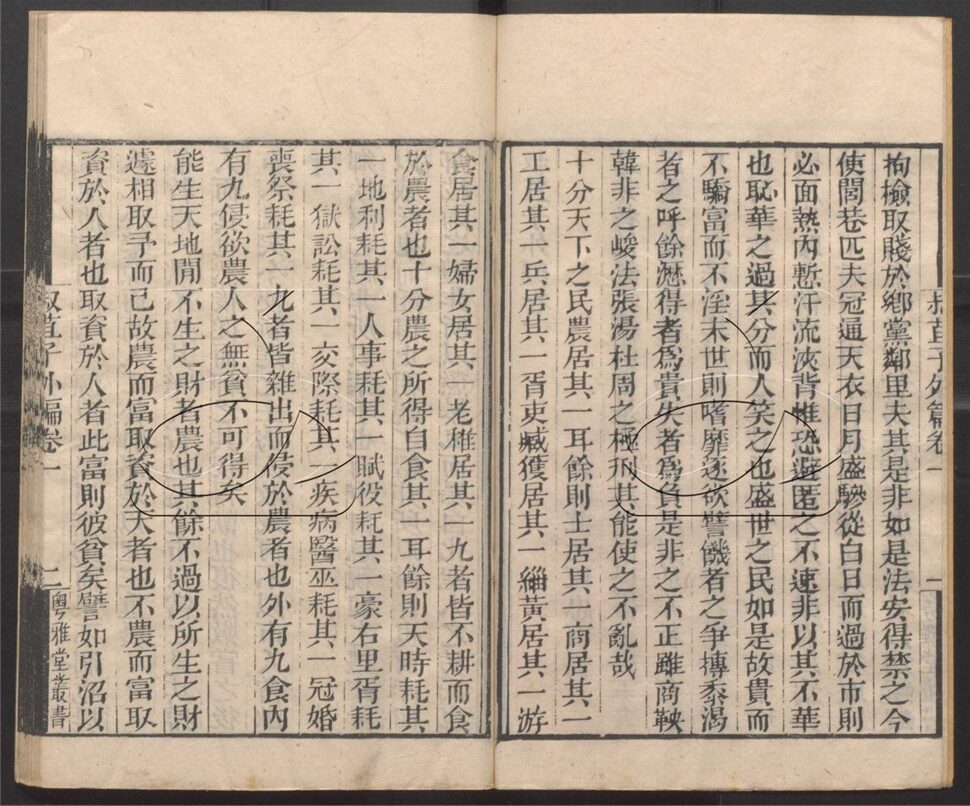 拘檢取賤於鄉黨鄰里夫其是非如是法安得禁之今
使閭巷匹夫冠通天衣日月盛騶從白日而過於市則
必面熱內慙汗流浹背惟恐避匿之不速非以其不華
也恥華之過其分而人笑之也盛世之民如是故貴而
不驕富而不淫末世則嗜靡逐欲譬饑者之爭摶黍渴
者之呼餘瀝得者為貴失者為負是非之不正雖商鞅
韓非之峻法張湯杜周之極刑其能使之不亂哉
十分天下之民農居其一耳餘則士居其一商居其一
工居其一兵居其一胥吏臧獲居其一緇黃居其一游
叔苴子外篇卷一
一
食居其一婦女居其一老稚居其一九者皆不耕而食
於農者也十分農之所得自食其一耳餘則天時耗其
一地利耗其一人事耗其一賦役耗其一豪右里胥耗
其一獄訟耗其一交際耗其一疾病醫巫耗其一冠婚
喪祭耗其一九者皆雜出而侵於農者也外有九食內
有九侵欲農人之無貧不可得矣
能生天地閒不生之財者農也其餘不過以所生之財
遞相取予而已故農而富取資於天者也不農而富取
資於人者也取資於人者此富則彼貧矣譬如引沼以
叔苴子外編卷一
二
粵雅堂叢書